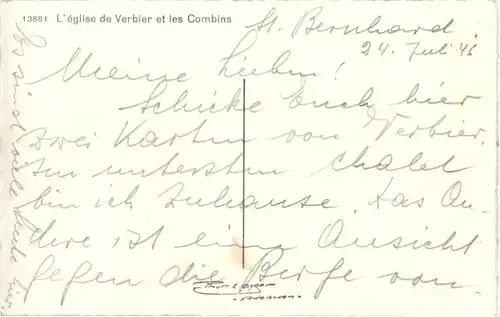 13661 L'église de Verbier et les Combins
St. Bernhard.
24. Juli 46
Meine Lieben!
Schicke Euch hier
zwei Karten von Verbier.
Im untersten Chalet
bin ich zuhause. Das An-
dere ist eine Ansicht
gegen die Berge von
Es sind viele Leute hier